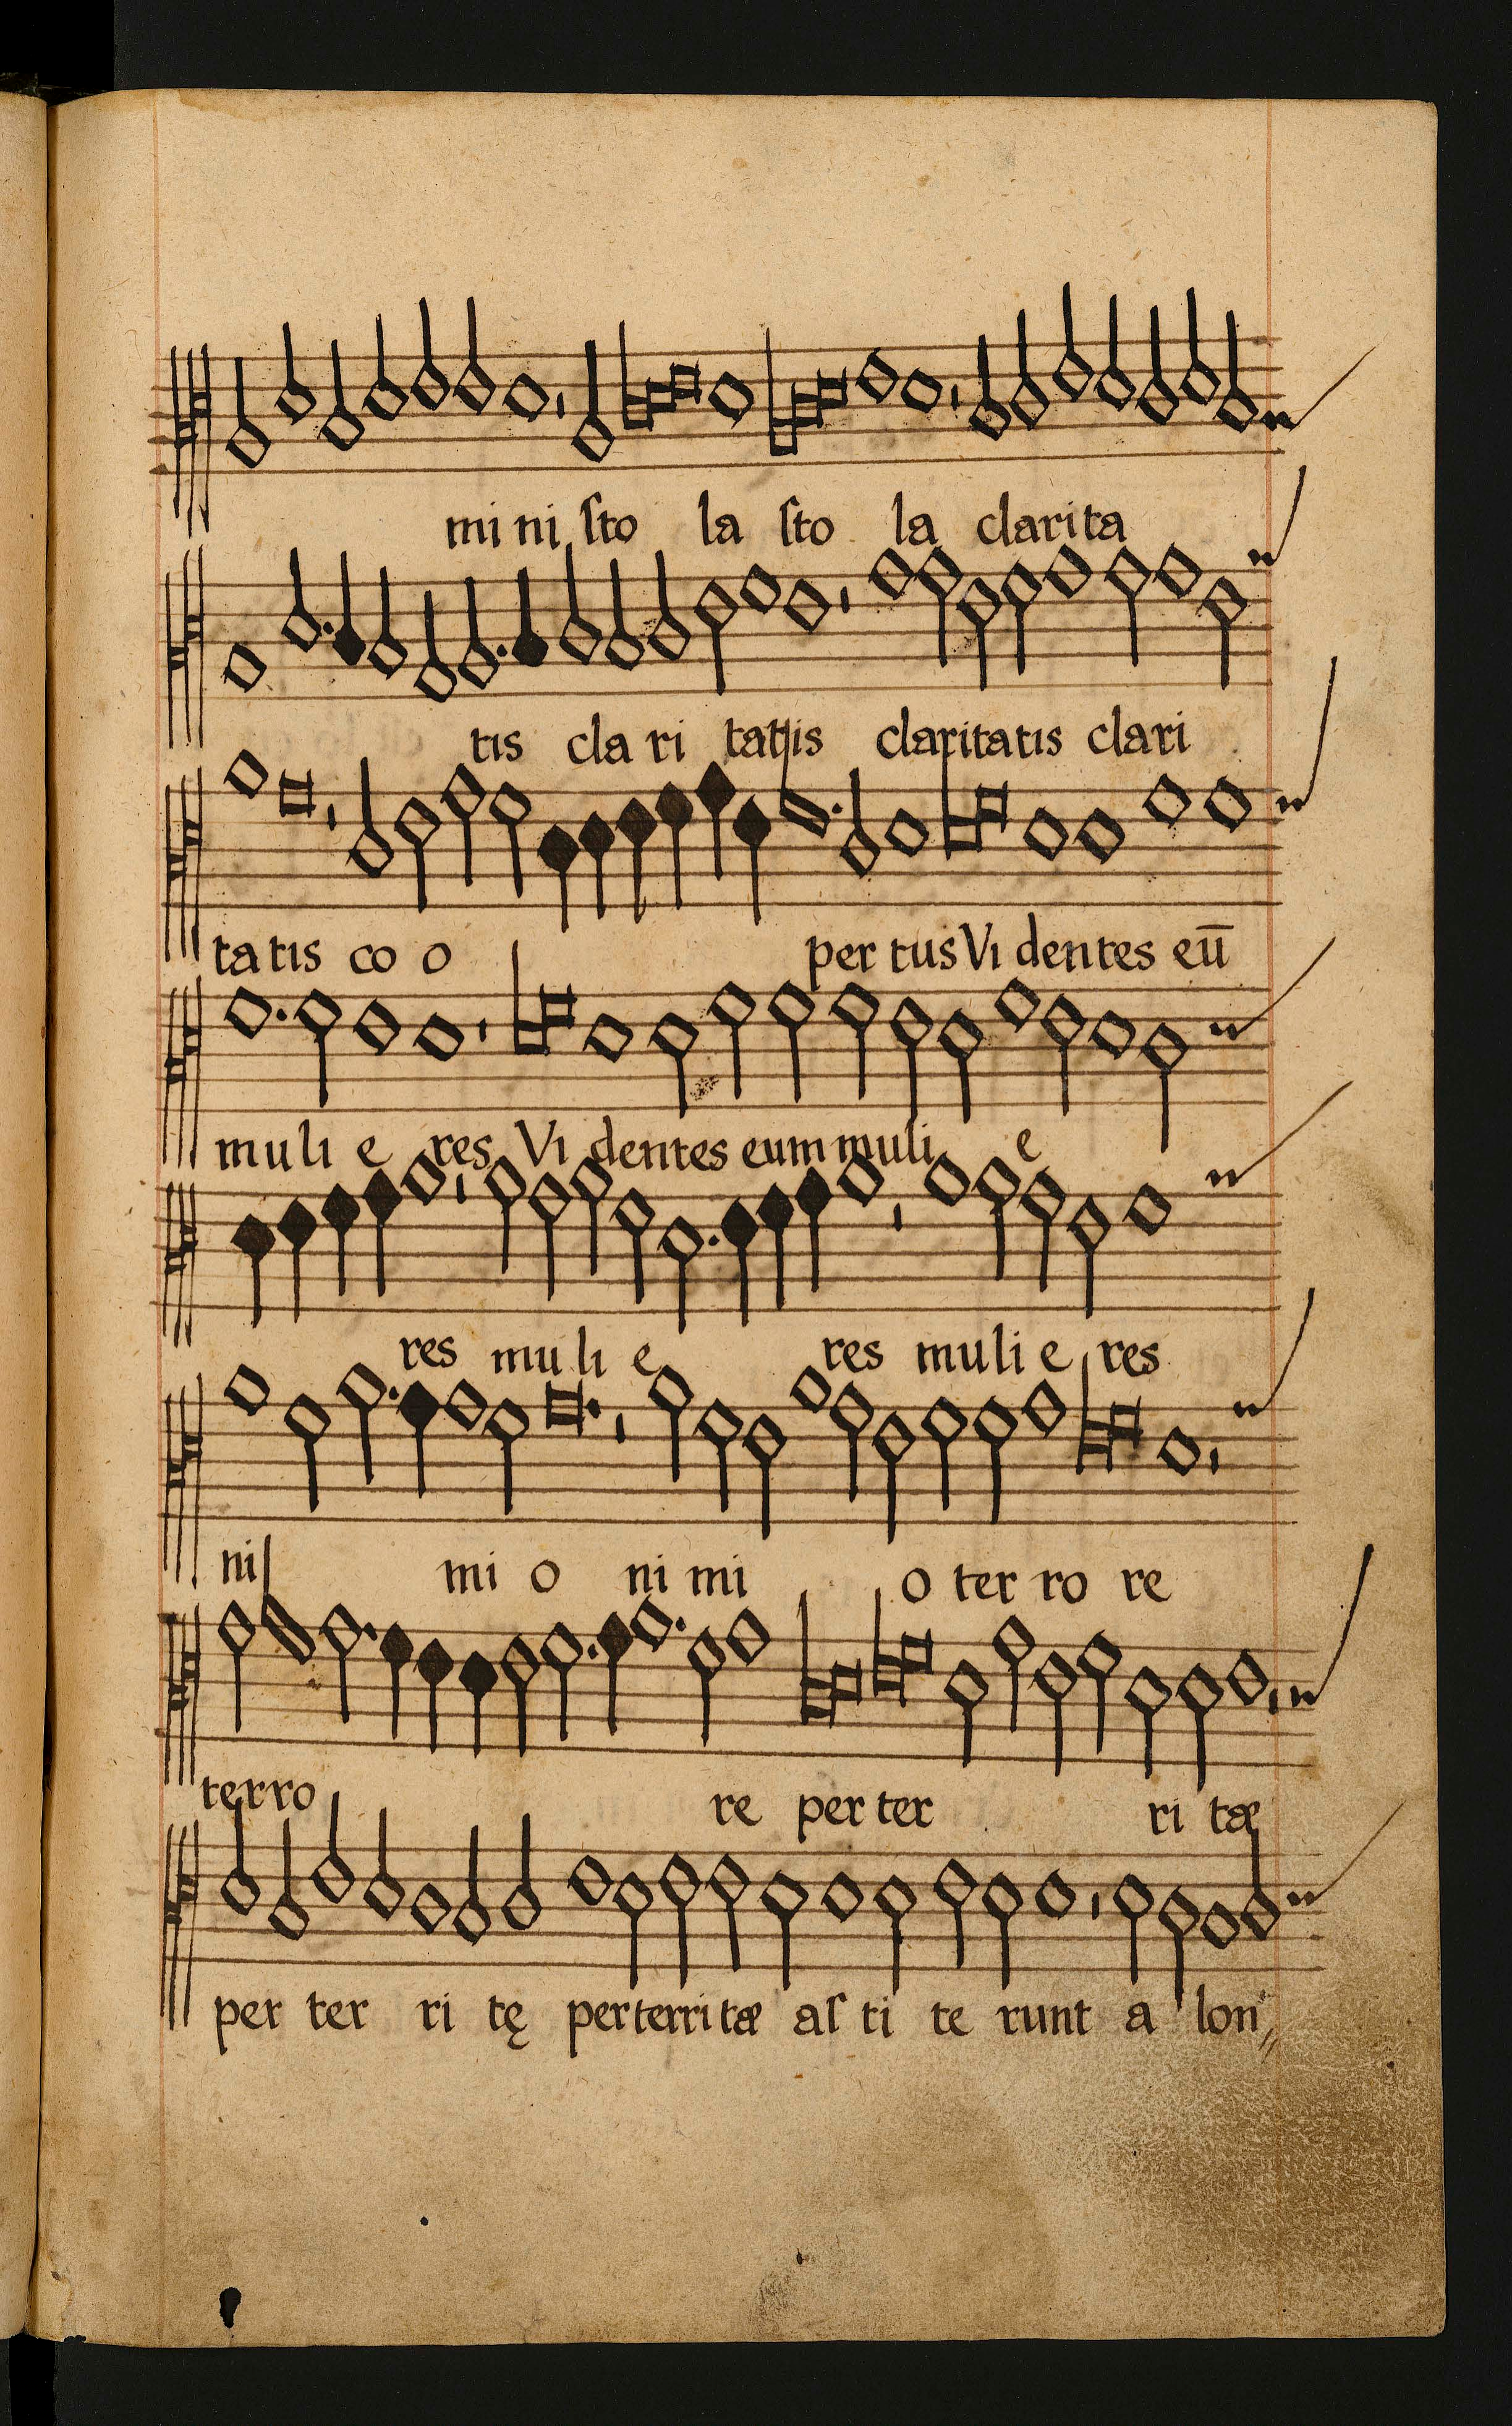 mi ni ſto la ſto la clarita
tis cla ri tatis claritatis clari
ta tis co o per tus Vi dentes eū
mu li e res Vi dentes eum muli e
res mu li e res mu li e res
ni mi o ni mi o ter ro re
terro re per ter ri tæ
per ter ri tę perterri tæ aſ ti te runt a lon